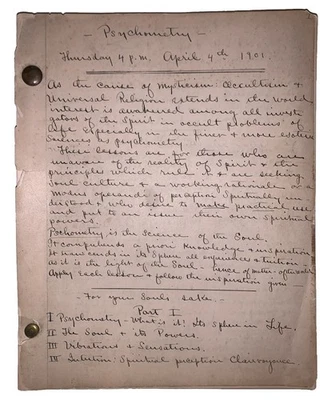 - Psychometry -
Thursday 4 P.M. April 4th 1901
As the cause of mysticism Occultism &
Universal Religion extends in the world
interest is awakened among all investi
gators of the Spirit in occult problems of
life especially in the finer & more esoteric
Sciences as psychometry
These lessons are for those who are
unaware of the reality of Spirit & the
principles which rule it & are seeking
Soul culture & a working rationale or a
modus operandi of perception Spiritually un-
derstood & who desire to make practical use
and put to an issue their own Spiritual
powers.
Psychometry is the Science of the Soul.
It comprehends a priori knowledge & inspiration
It transcends in its Sphere all experiences & tuition
as it is the light of the Soul - hence of
Apply each lesson & follow the inspiration given -
- For your Souls sake. -
Part I
I Psychometry - What is it? Its Sphere in Life.
II The Soul & its Powers.
III Vibrations & Sensations.
IV Intuition: Spiritual perception Clairvoyance